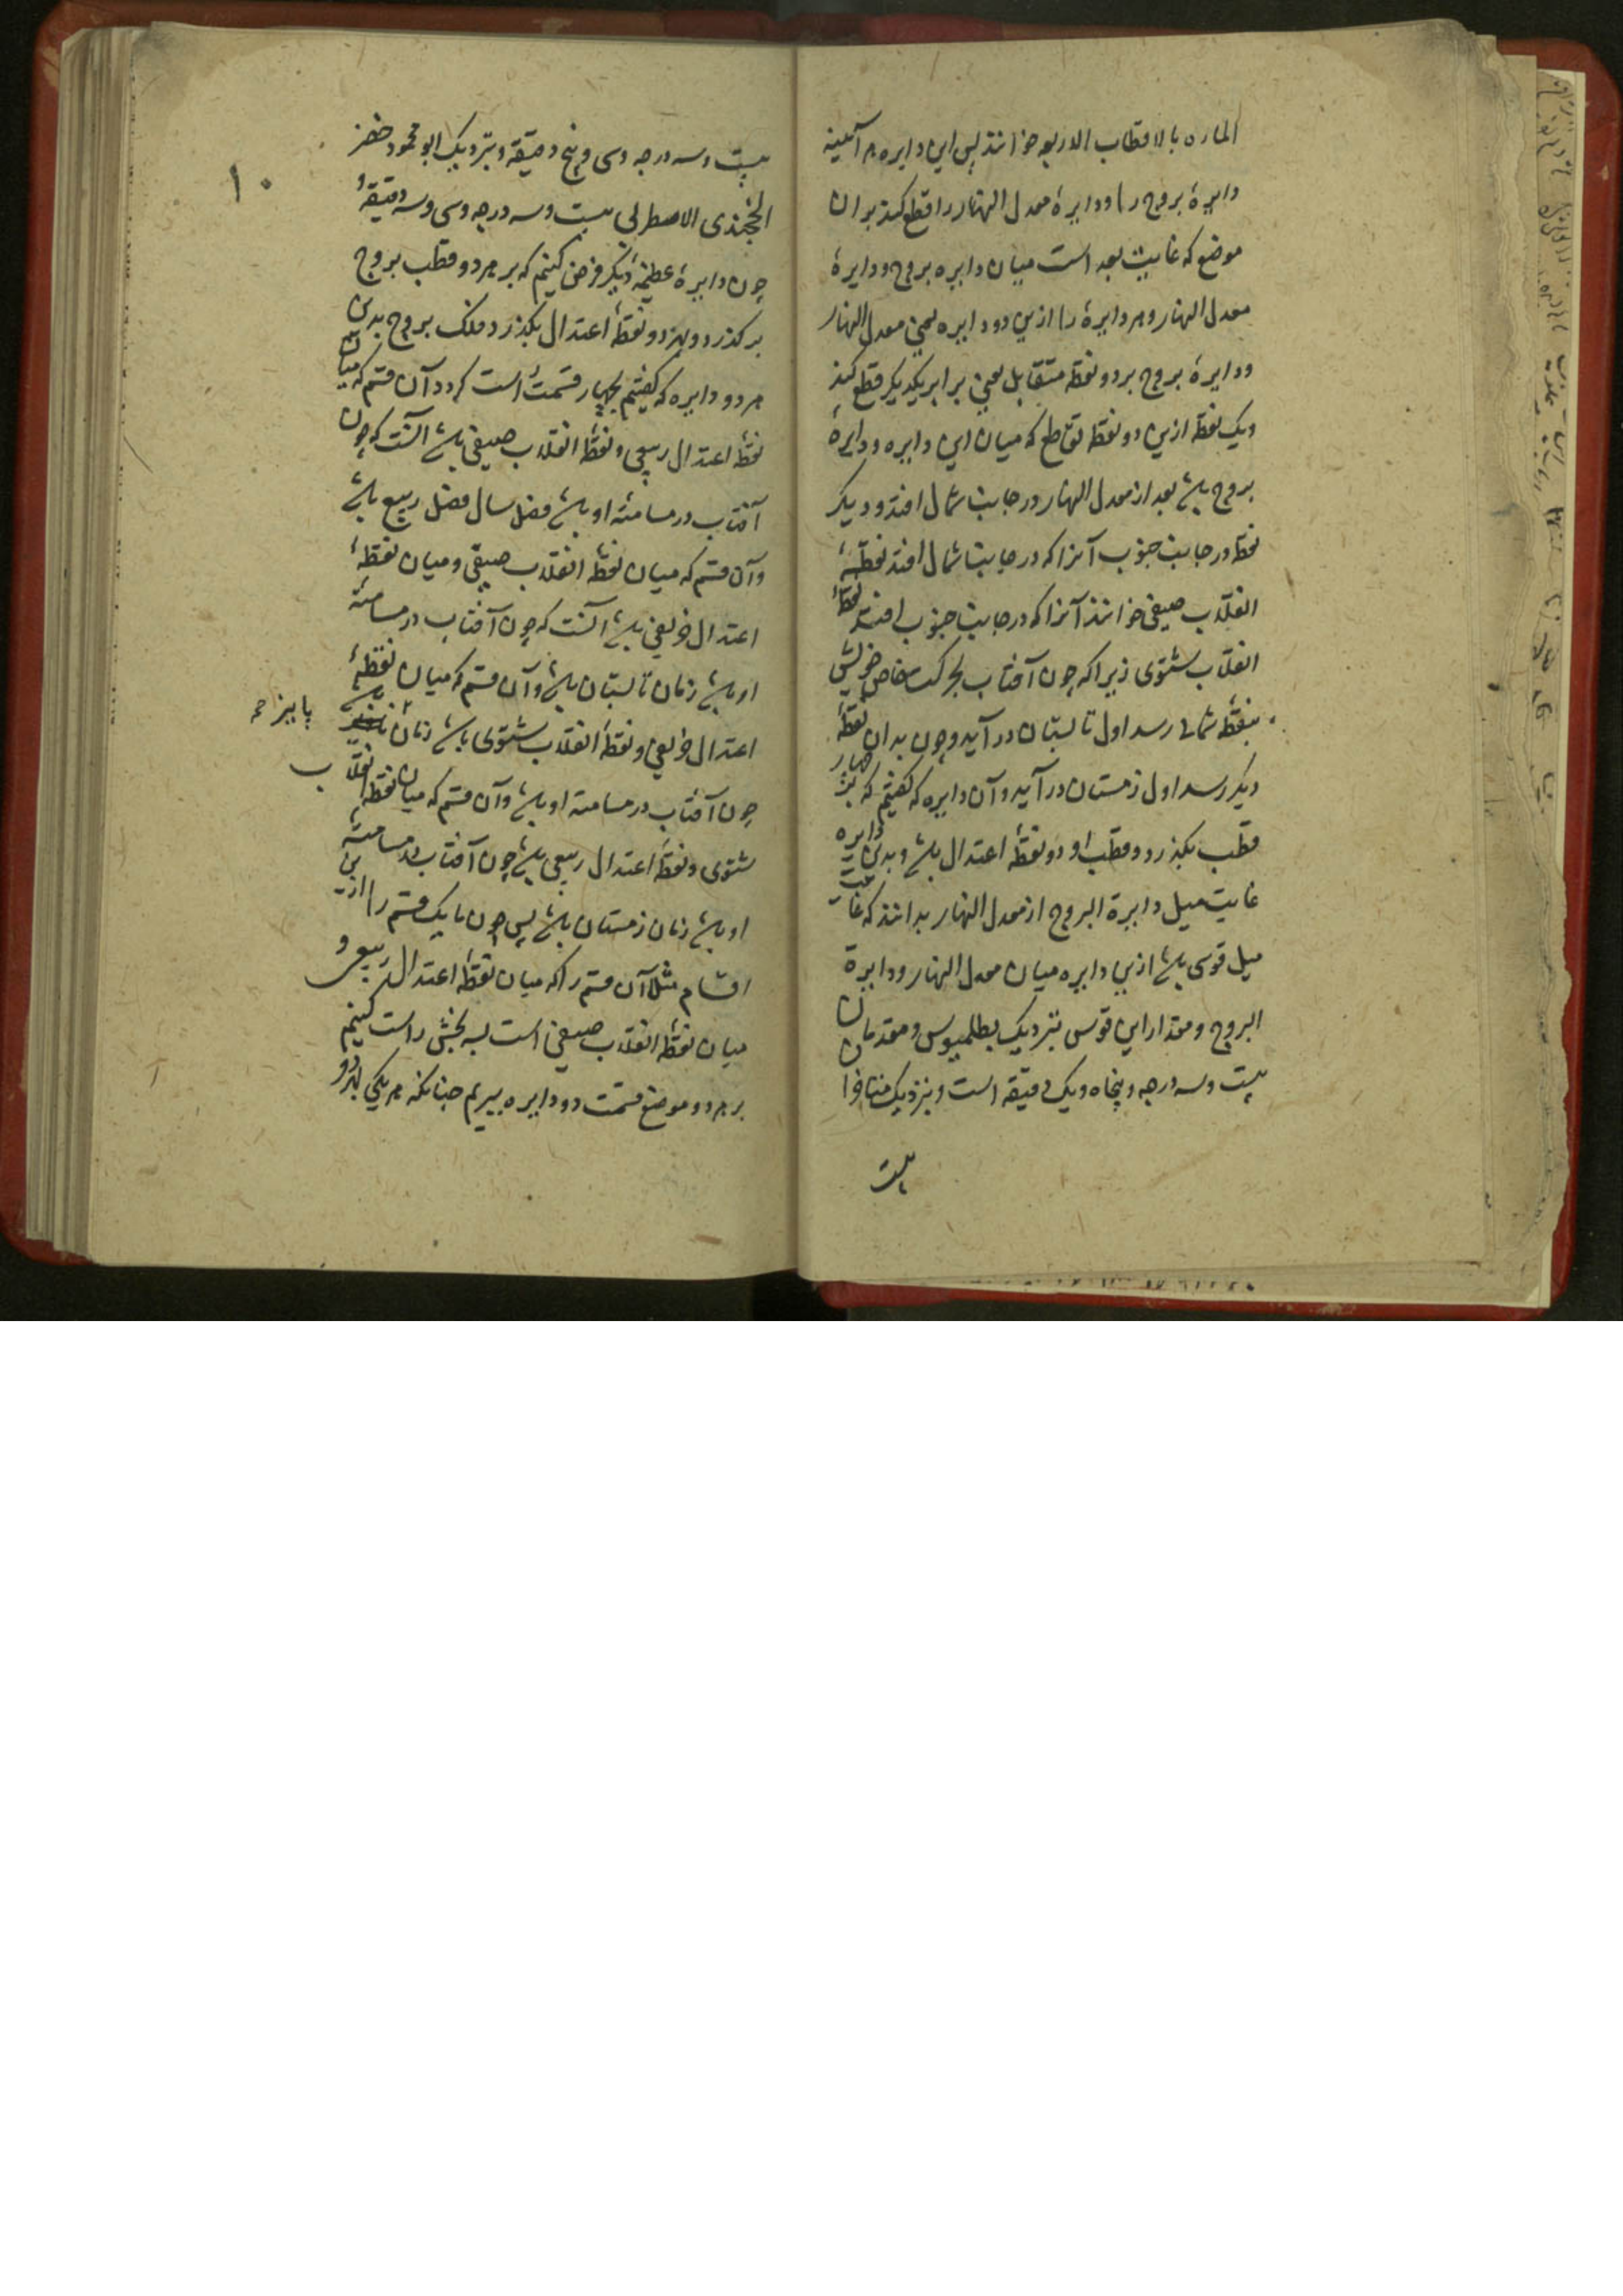 الماره بالاقطاب الاربعه خوانند پس این دایره هر آینه
دایرهٔ بروج را و دایرهٔ معدل النهار را قطع کند بران
موضع که غایت بعد است میان دایره بروج و دایرهٔ
معدل النهار و هر دایرهٔ را ازین دو دایره یعنی معدل النهار
و دایرهٔ بروج بر دو نقطه متقابل یعنی برابر یکدیگر قطع کند
و یک نقطه ازین دو نقطه تقاطع که میان این دایره و دایرهٔ
بروج باشد بعد از معدل النهار در جانب شمال افتد و دیگر
نقطه در جانب جنوب آنرا که در جانب شمال افتد نقطهٔ
انقلاب صیفی خوانند آنرا که در جانب جنوب افتد نقطهٔ
انقلاب شتوی زیرا که چون آفتاب بحرکت خاص خویش
بنقطهٔ شمالی رسد اول تابستان درآید و چون بدان نقطهٔ
دیگر رسد اول زمستان درآید و آن دایره که گفتیم که بر چهار
قطب بگذرد دو قطب او دو نقطهٔ اعتدال باشد و بدین دایره
غایت میل دایرة البروج از معدل النهار بدانند که غایت
میل قوسی باشد ازین دایره میان معدل النهار و دایرة
البروج و مقدار این قوس بنزدیک بطلمیوس و متقدمان
بیست و سه درجه و پنجاه و یک دقیقه است و بنزدیک
بیست
۱۰
بیست و سه درجه و سی و پنج دقیقه و بنزدیک ابو محمود خضر
الخجندی الاصطرلابی بیست و سه درجه و سی و سه دقیقهٔ
چون دایرهٔ عظیمهٔ دیگر فرض کنیم که بر هر دو قطب بروج
برگذرد و بهر دو نقطهٔ اعتدال بگذرد فلک بروج بدین
هر دو دایره که گفتیم بچهار قسمت راست گردد آن قسم که میان
نقطهٔ اعتدال ربیعی و نقطهٔ انقلاب صیفی باشد آنست که چون
آفتاب در مسامتهٔ او باشد فصل سال فصل ربیع باشد
و آن قسم که میان نقطهٔ انقلاب صیفی و میان نقطهٔ
اعتدال خریفی باشد آنست که چون آفتاب در مسامتهٔ
او باشد زمان تابستان باشد و آن قسم که میان نقطهٔ
اعتدال خریفی و نقطهٔ انقلاب شتوی باشد زمان
پاییز صح
چون آفتاب در مسامتهٔ او باشد و آن قسم که میان نقطه انقلاب
شتوی و نقطهٔ اعتدال ربیعی باشد چون آفتاب در مسامتهٔ
او باشد زمان زمستان باشد پس چون ما یک قسم را ازین
اقسام مثلا آن قسم را که میان نقطهٔ اعتدال ربیعی و
میان نقطهٔ انقلاب صیفی است بسه بخش راست کنیم
بر هر دو موضع قسمت دو دایره ببریم چنانکه هر یکی